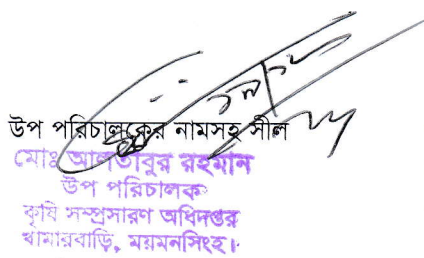 উপ পরিচালকের নামসহ সীল
মোঃ আলতাবুর রহমান
উপ পরিচালক
কৃষি সম্প্রসারণ অধিদপ্তর
খামারবাড়ি, ময়মনসিংহ।